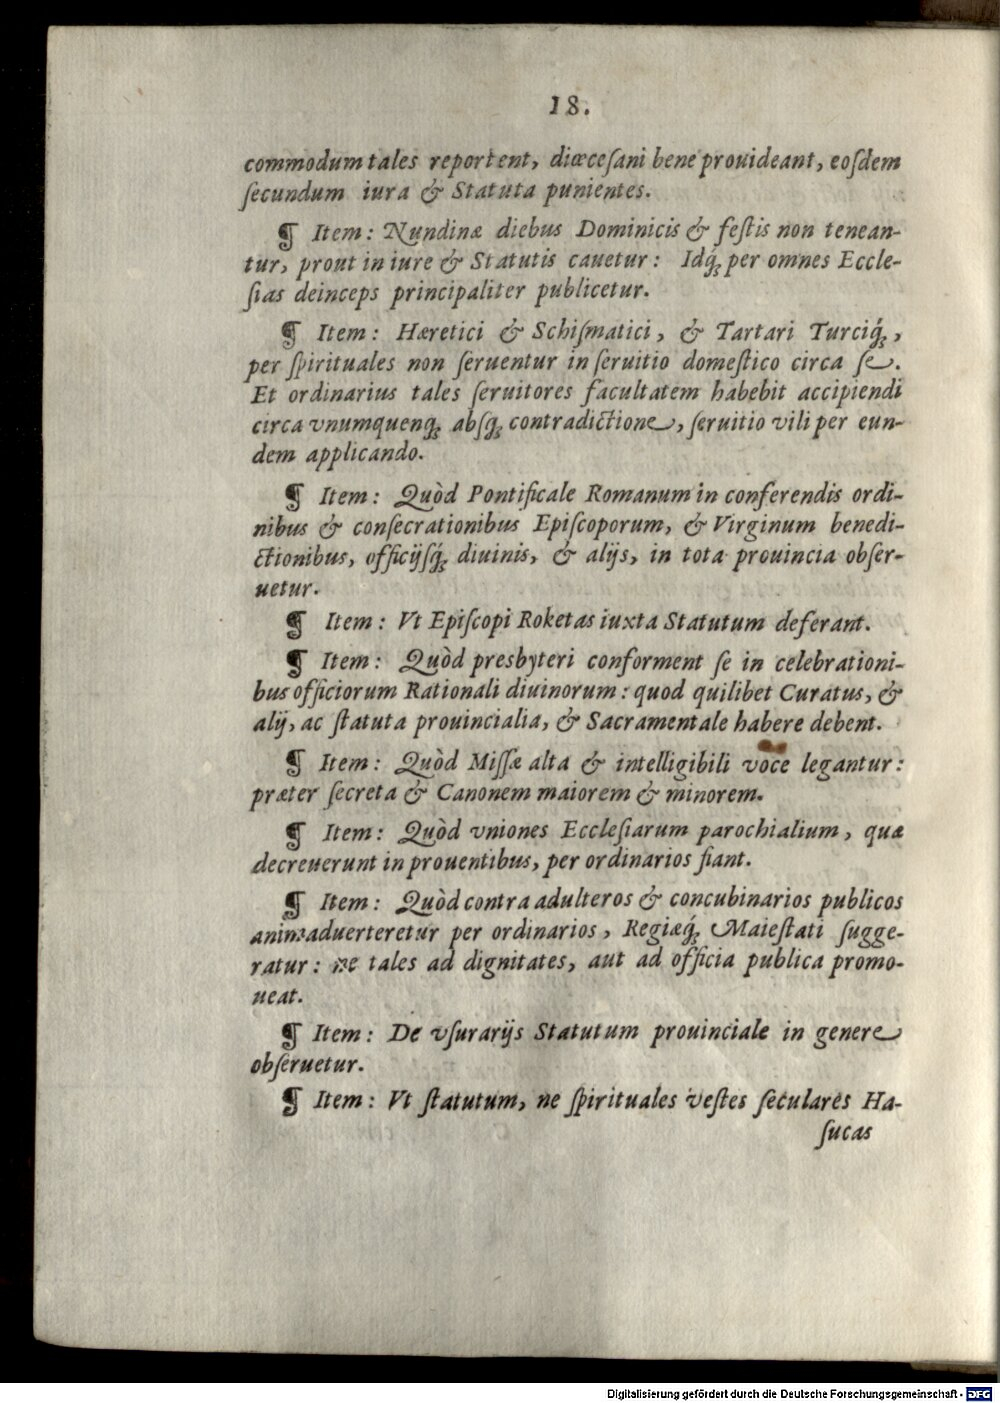 18.
commodum tales reportent, diœceſani bene prouideant, eoſdem
ſecundum iura & Statuta punientes.
¶ Item: Nundinæ diebus Dominicis & feſtis non tenean-
tur, prout in iure & Statutis cauetur: Idq́ꝫ per omnes Eccle-
ſias deinceps principaliter publicetur.
¶ Item: Hæretici & Schiſmatici, & Tartari Turciq́ꝫ,
per ſpirituales non ſeruentur in ſeruitio domeſtico circa ſe.
Et ordinarius tales ſeruitores facultatem habebit accipiendi
circa vnumquenqꝫ abſqꝫ contradictione, ſeruitio vili per eun-
dem applicando.
¶ Item: Quòd Pontificale Romanum in conferendis ordi-
nibus & conſecrationibus Epiſcoporum, & Virginum benedi-
ctionibus, officijſq́ꝫ diuinis, & alijs, in tota prouincia obſer-
uetur.
¶ Item: Vt Epiſcopi Roketas iuxta Statutum deferant.
¶ Item: Quòd presbyteri conforment ſe in celebrationi-
bus officiorum Rationali diuinorum: quod quilibet Curatus, &
alij, ac ſtatuta prouincialia, & Sacramentale habere debent.
¶ Item: Quòd Miſſæ alta & intelligibili voce legantur:
præter ſecreta & Canonem maiorem & minorem.
¶ Item: Quòd vniones Eccleſiarum parochialium, quæ
decreuerunt in prouentibus, per ordinarios fiant.
¶ Item: Quòd contra adulteros & concubinarios publicos
animaduerteretur per ordinarios, Regiæq́ꝫ Maieſtati ſugge-
ratur: ne tales ad dignitates, aut ad officia publica promo-
ueat.
¶ Item: De vſurarijs Statutum prouinciale in genere
obſeruetur.
¶ Item: Vt ſtatutum, ne ſpirituales veſtes ſeculares Ha-
ſucas
Digitalisierung gefördert durch die Deutsche Forschungsgemeinschaft - DFG